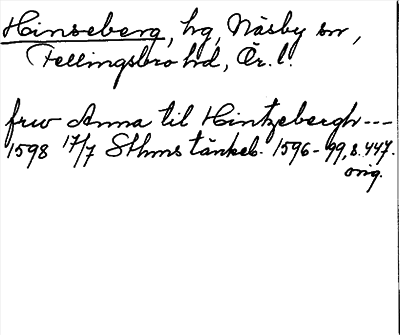 Hinseberg, hg, Näsby sn,
Fellingsbro hd, Ör. l.
frw Anna til Hintzebergh ---
1598 17/7 Sthms tänkeb. 1596-99, s. 447.
orig.